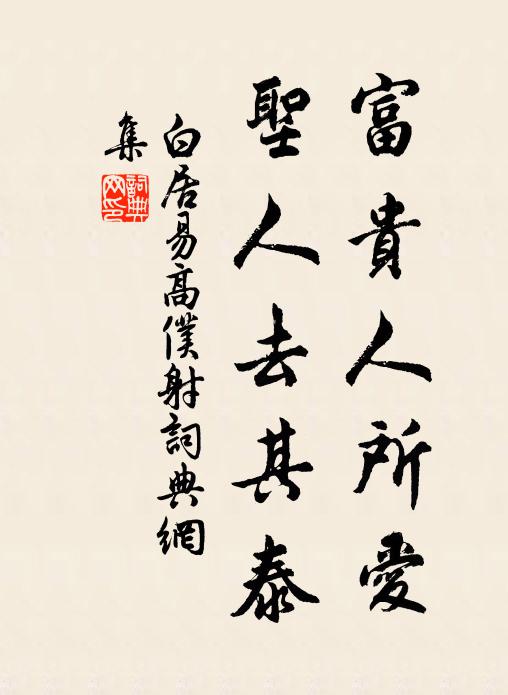 富貴人所愛
聖人去其泰
白居易高僕射詞典網
集
詞典
網印